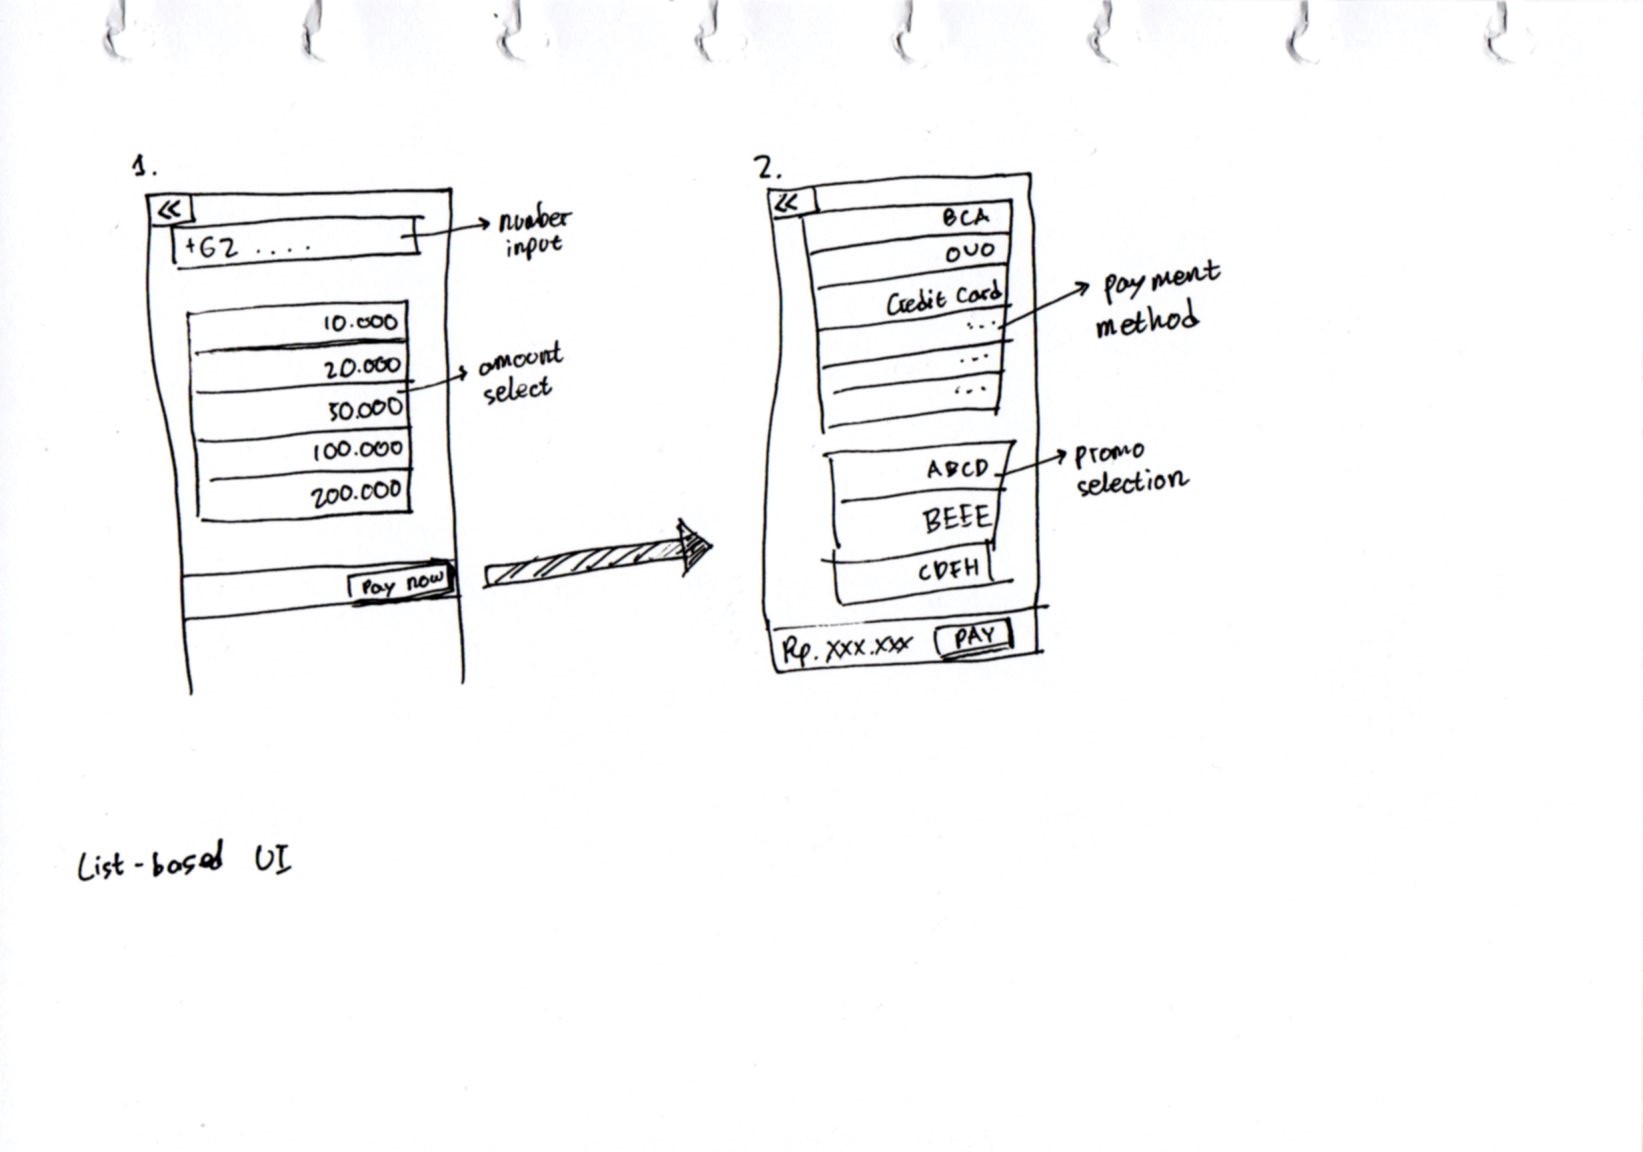 1.
<<
+62 ....
number
input
10.000
20.000
50.000
100.000
200.000
amount
select
Pay now
2.
<<
BCA
OVO
Credit Card
...
...
...
payment
method
ABCD
BEEE
CDFH
promo
selection
Rp. XXX.XXX
PAY
List-based UI